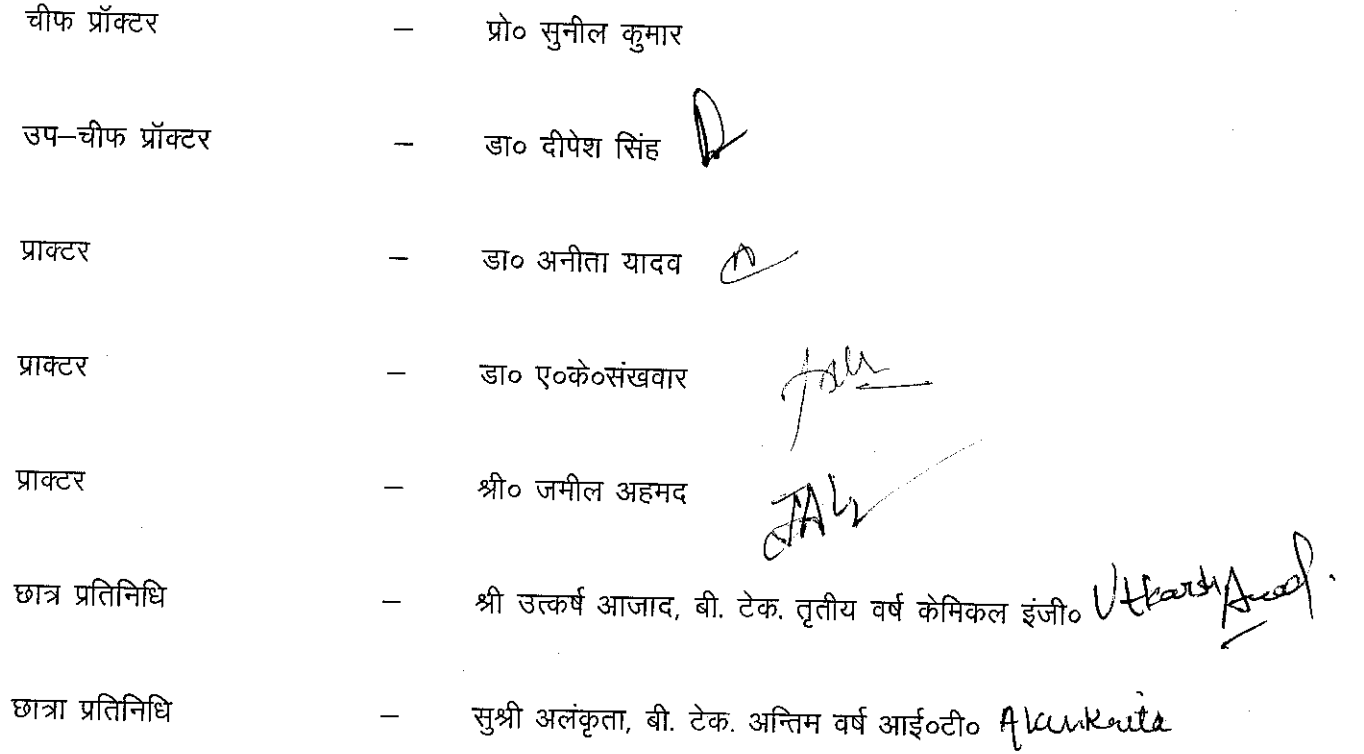 चीफ प्रॉक्टर – प्रो० सुनील कुमार
उप–चीफ प्रॉक्टर – डा० दीपेश सिंह
प्राक्टर – डा० अनीता यादव
प्राक्टर – डा० ए०के०संखवार
प्राक्टर – श्री० जमील अहमद
छात्र प्रतिनिधि – श्री उत्कर्ष आजाद, बी. टेक. तृतीय वर्ष केमिकल इंजी० Utkarsh Azad.
छात्रा प्रतिनिधि – सुश्री अलंकृता, बी. टेक. अन्तिम वर्ष आई०टी० Alankrita